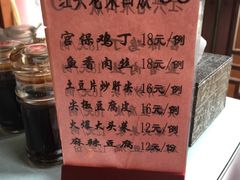 宫保鸡丁 18元/例
鱼香肉丝 18元/例
土豆片炒肝尖 16元/例
尖椒豆腐皮 16元/例
大头菜 12元/例
麻辣豆腐 12元/份